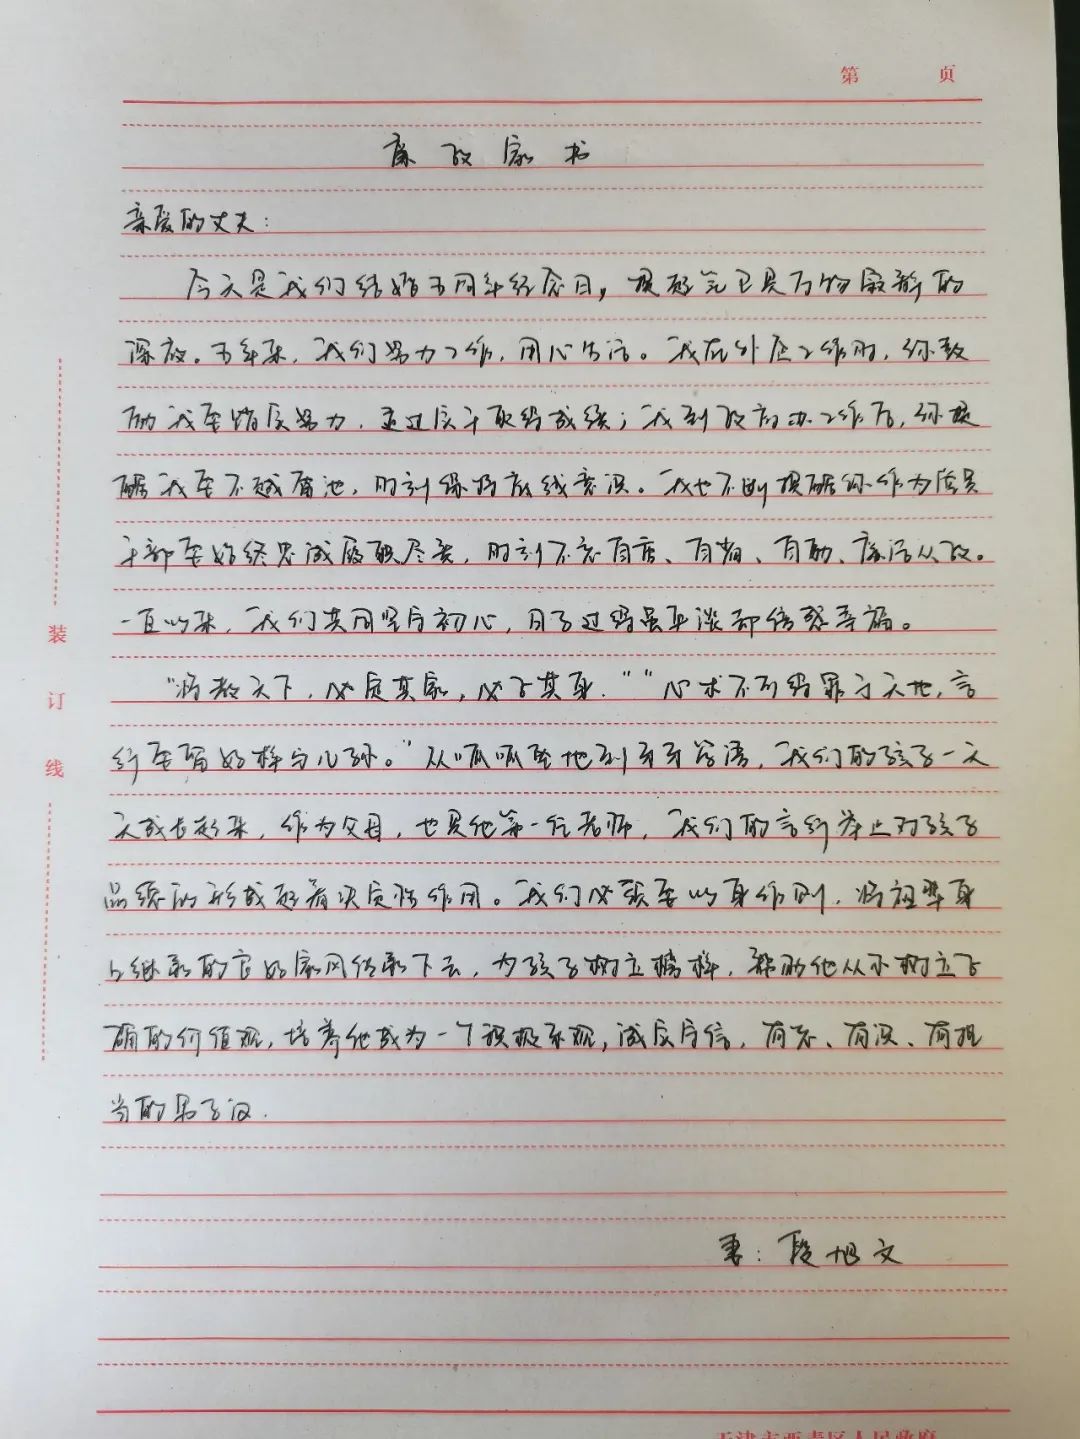 第 页
廉政家书
亲爱的丈夫：
今天是我们结婚五周年纪念日，提起笔已是万物寂静的
深夜。五年来，我们努力工作，用心生活。我在外企工作时，你鼓
励我要踏实努力，通过实干取得成绩；我到政府办工作后，你提
醒我要不越雷池，时刻保持底线意识。我也不断提醒你作为党员
干部要始终忠诚履职尽责，时刻不忘自重、自省、自励、廉洁从政。
一直以来，我们共同坚守初心，日子过得虽平淡却倍感幸福。
“将教天下，必定其家，必正其身．”“心术不可得罪于天地，言
行要留好样与儿孙。”从呱呱坠地到牙牙学语，我们的孩子一天
天成长起来，作为父母，也是他第一任老师，我们的言行举止对孩子
品德的形成起着决定性作用。我们必须要以身作则，将祖辈身
上继承的良好家风传承下去，为孩子树立榜样，帮助他从小树立正
确的价值观，培养他成为一个积极乐观，诚实守信，有志、有识、有担
当的男子汉．
妻：段旭文
装
订
线
天津市西青区人民政府